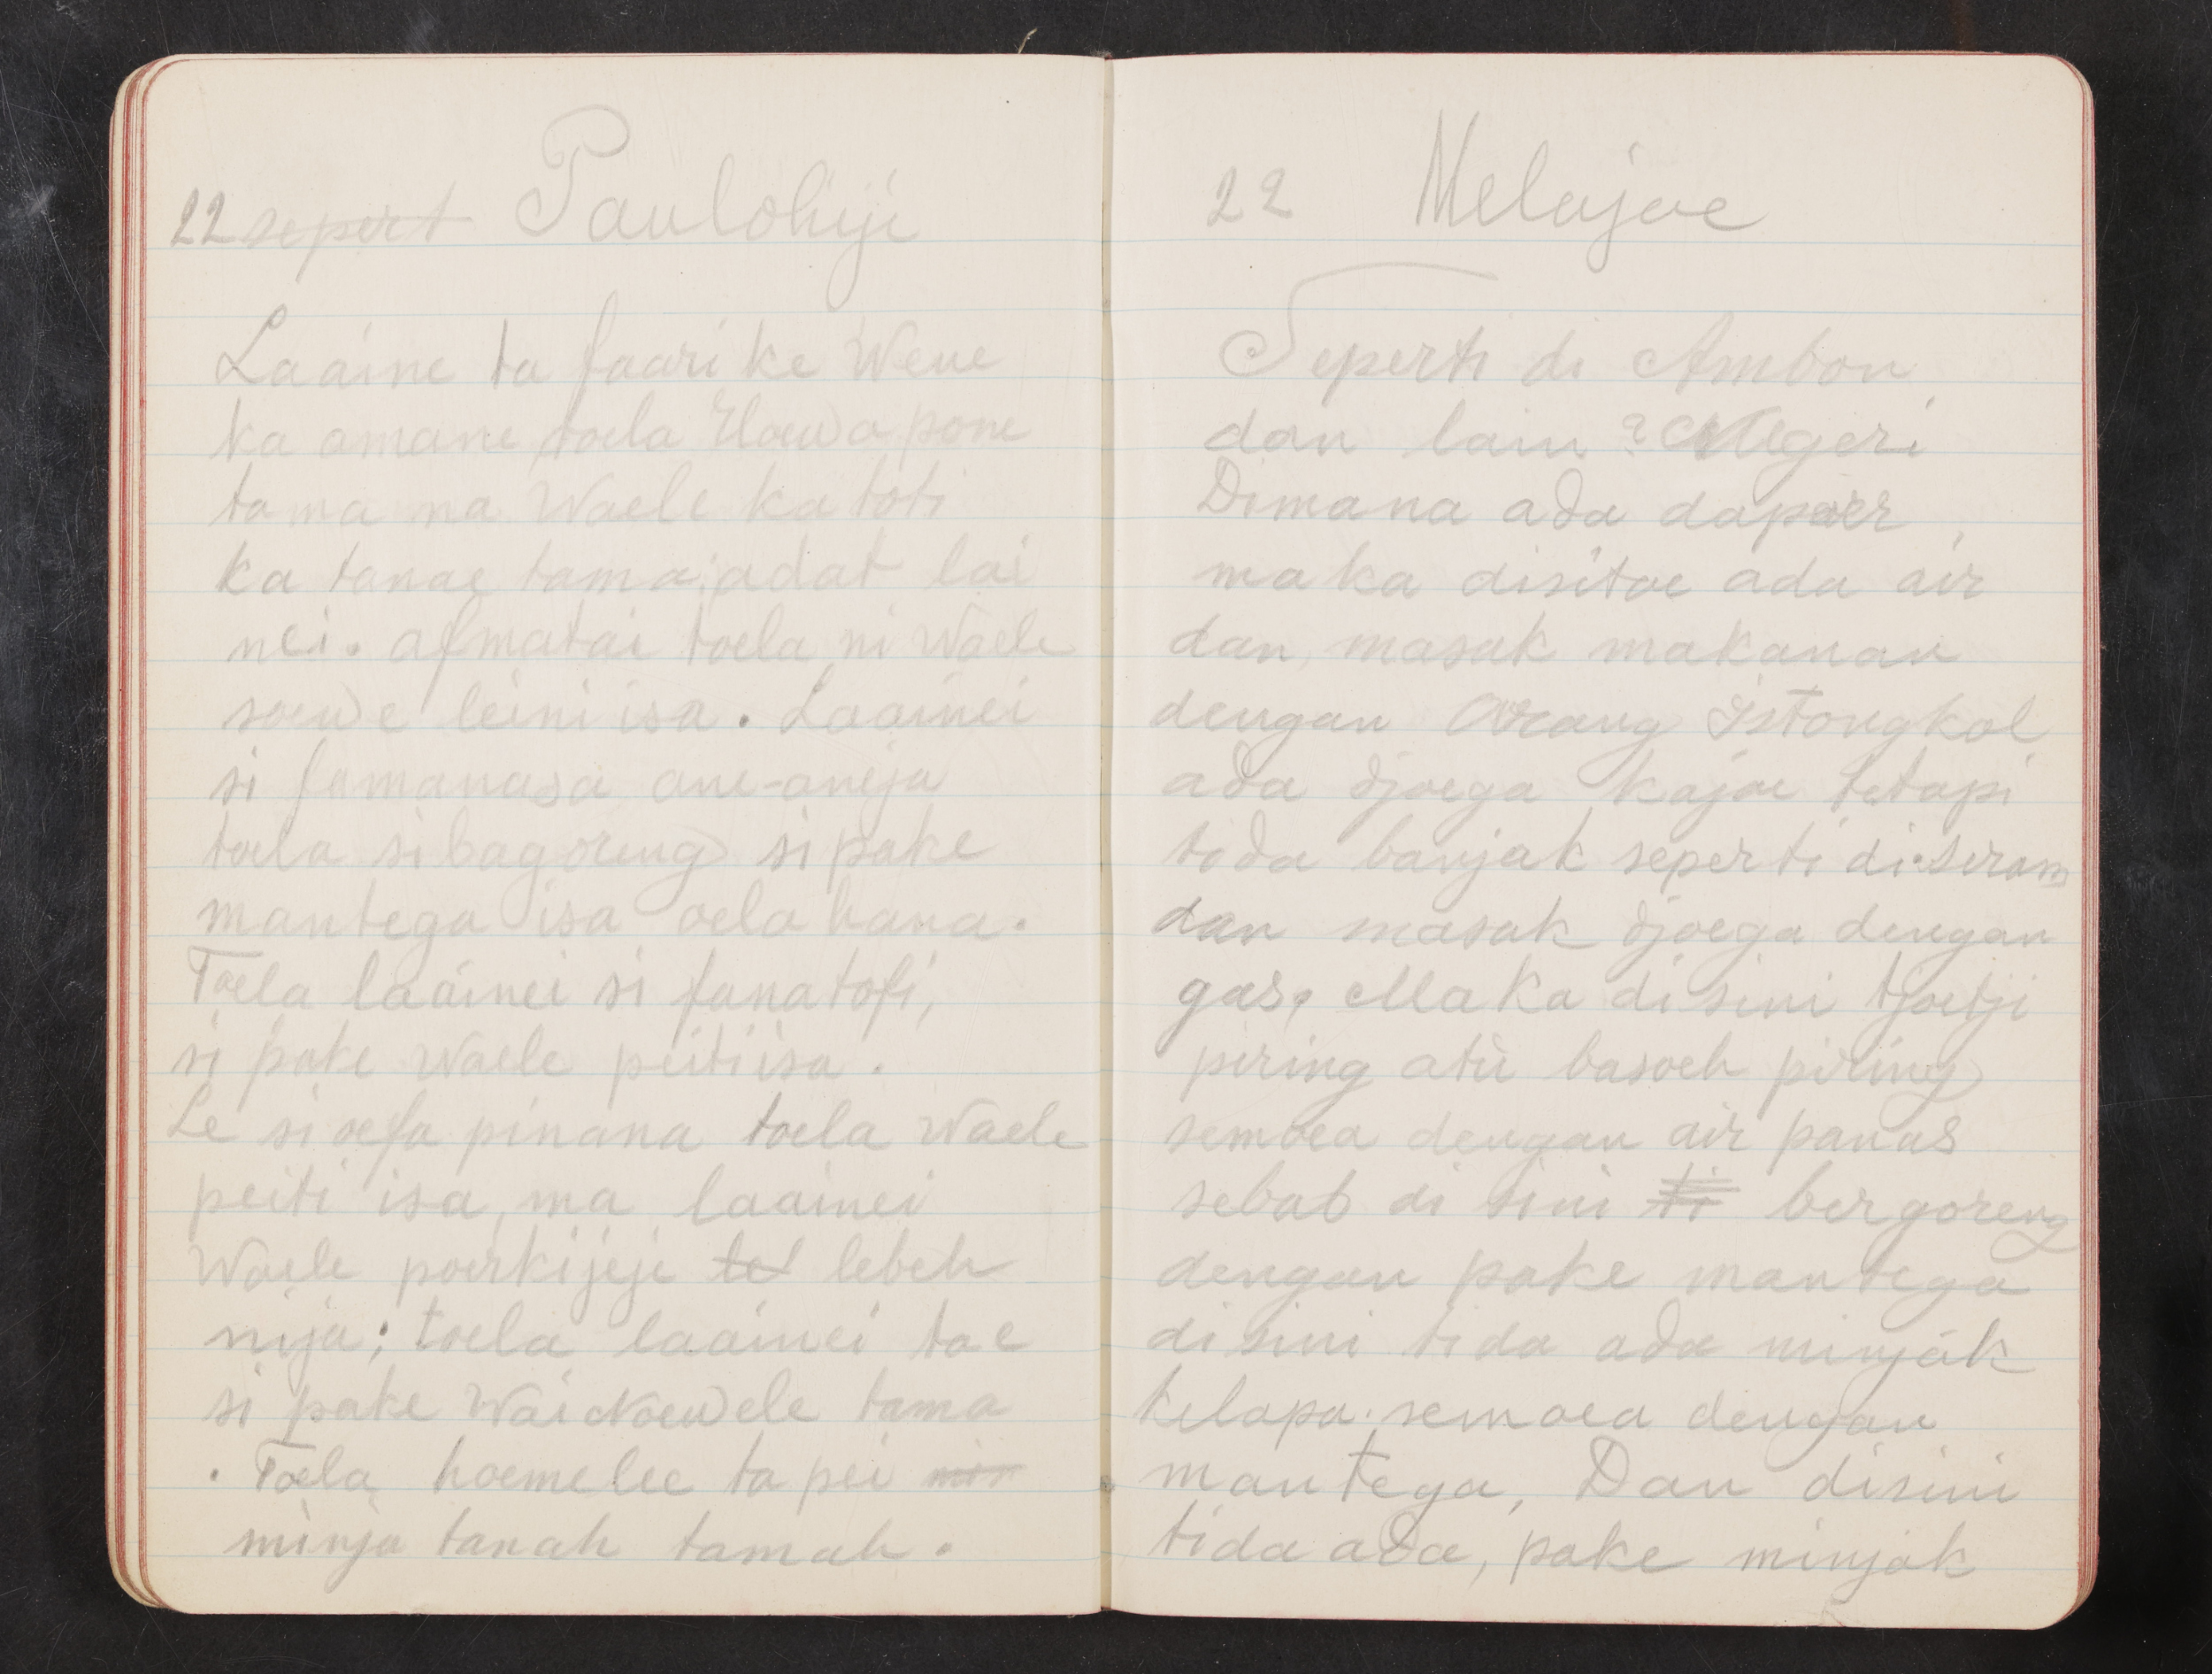 22 sepert Paulohiji
Laaine ta faari ke Weue
ka amane toela Eloewa pone
tama na Waele ka toti
ka tanae tama adat lai
nei. afmatai toela ni Waele
soewe leini isa. Laainei
si famanasa ane-aneja
toela si bagoreng si pake
mantega isa oela hana.
Toela laainei si fanatofi,
si pake Waele peiti isa.
Le si oefa pinana toela Waele
peiti isa, ma laainei
Waele poerkijeje tel lebeh
nija; toela laainei tae
si pake Wai Noewele tama
. Toela hoemelee ta pei min
minja tanah tamah.
22 Melajoe
Seperti di Ambon
dan lain 2 Negeri
Dimana ada dapoer,
maka disitoe ada air
dan, masak makanan
dengan Arang istongkol
ada djoega kajoe tetapi
tida banjak seperti di.seram
dan masak djoega dengan
gas, Maka di sini tjoetji
piring atù basoeh piring
semoea dengan air panas
sebab di sini ti bergoreng
dengan pake mantega
di sini tida ada minjak
kelapa. semoea dengan
mantega, Dan disini
tida ada, pake minjak